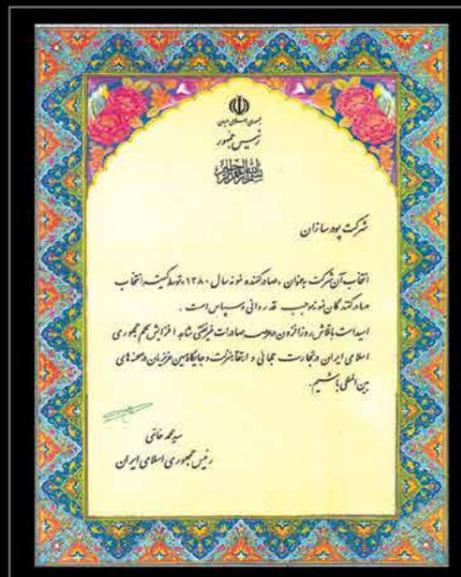 جمهوری اسلامی ایران
رئیس جمهور
بسم الله الرحمن الرحیم
شرکت پودر سازان
انتخاب آن شرکت بعنوان «صادرکننده نمونه سال ۱۳۸۰» توسط کمیته انتخاب
صادرکنندگان نمونه موجب قدردانی و سپاس است.
امید است با تلاش روزافزون در عرصه صادرات غیرنفتی شاهد افزایش سهم جمهوری
اسلامی ایران در تجارت جهانی و ارتقاء منزلت و جایگاه میهن عزیزمان در صحنه های
بین المللی باشیم.
سید محمد خاتمی
رئیس جمهوری اسلامی ایران